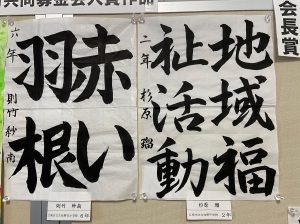 共同募金会入賞作品
会長賞
地域福
祉活動
二年 杉原 瑠
赤い
羽根
六年 則竹 紗南
則竹 紗南
6年
杉原 瑠
2年